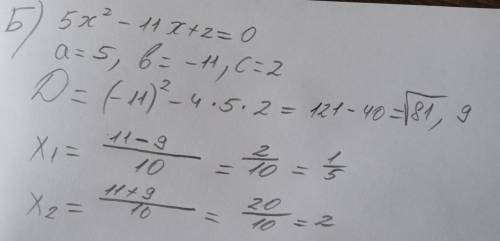 Б) 5x² - 11x + 2 = 0
a = 5, b = -11, c = 2
D = (-11)² - 4 · 5 · 2 = 121 - 40 = √81, 9
x₁ = (11 - 9)/10 = 2/10 = 1/5
x₂ = (11 + 9)/10 = 20/10 = 2